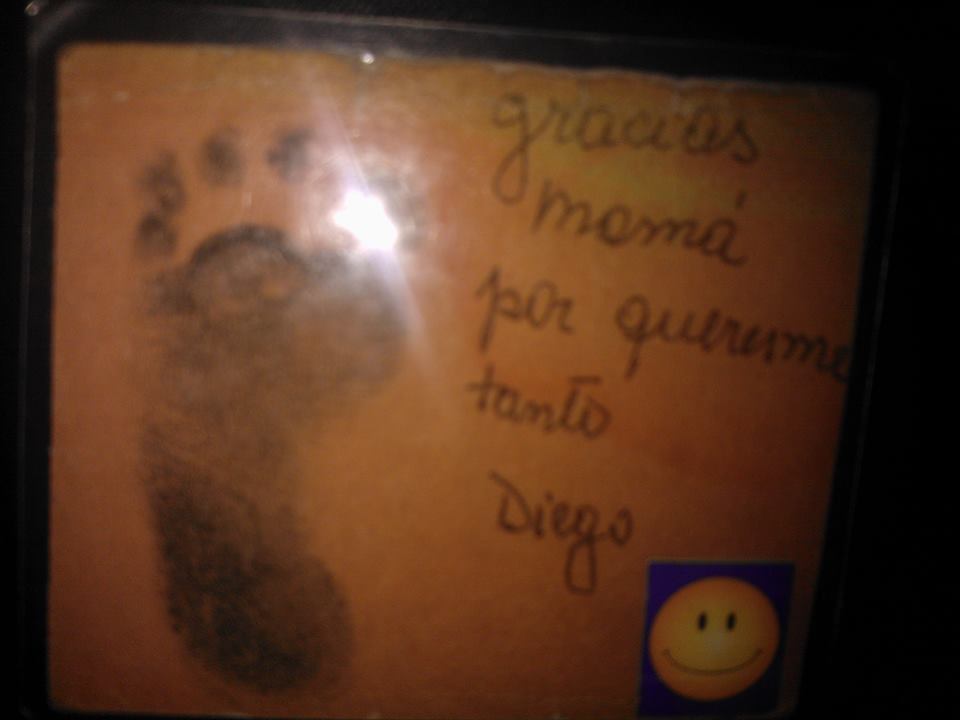 gracias
mamá
por quererme
tanto
Diego